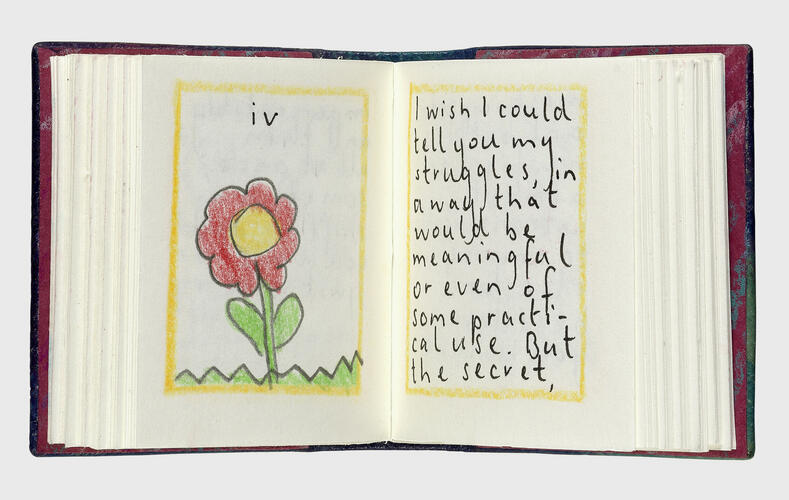 iv
I wish I could
tell you my
struggles, in
a way that
would be
meaningful
or even of
some practi-
cal use. But
the secret,